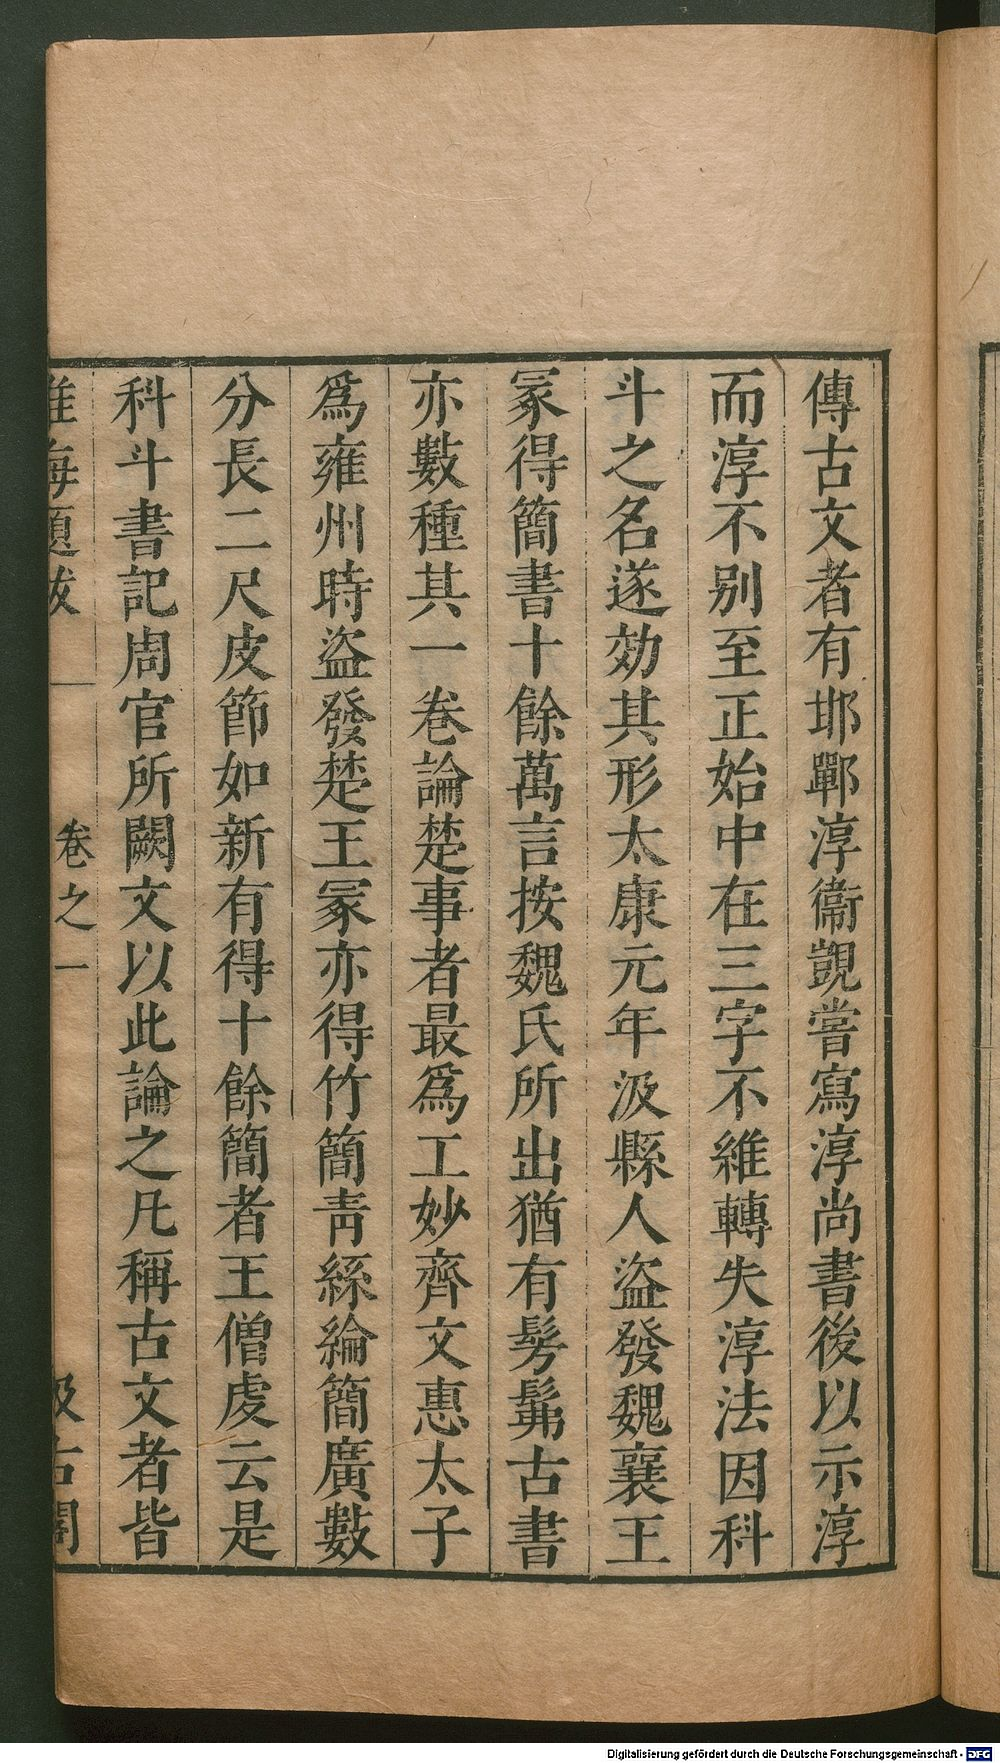 傳古文者有邯鄲淳衞覬嘗寫淳尚書後以示淳
而淳不别至正始中在三字不維轉失淳法因科
斗之名遂効其形太康元年汲縣人盜發魏襄王
冢得簡書十餘萬言按魏氏所出猶有髣髴古書
亦數種其一卷論楚事者最爲工妙齊文惠太子
爲雍州時盜發楚王冢亦得竹簡靑絲綸簡廣數
分長二尺皮節如新有得十餘簡者王僧虔云是
科斗書記周官所闕文以此論之凡稱古文者皆
淮海題跋 卷之一 汲古閣
Digitalisierung gefördert durch die Deutsche Forschungsgemeinschaft - DFG